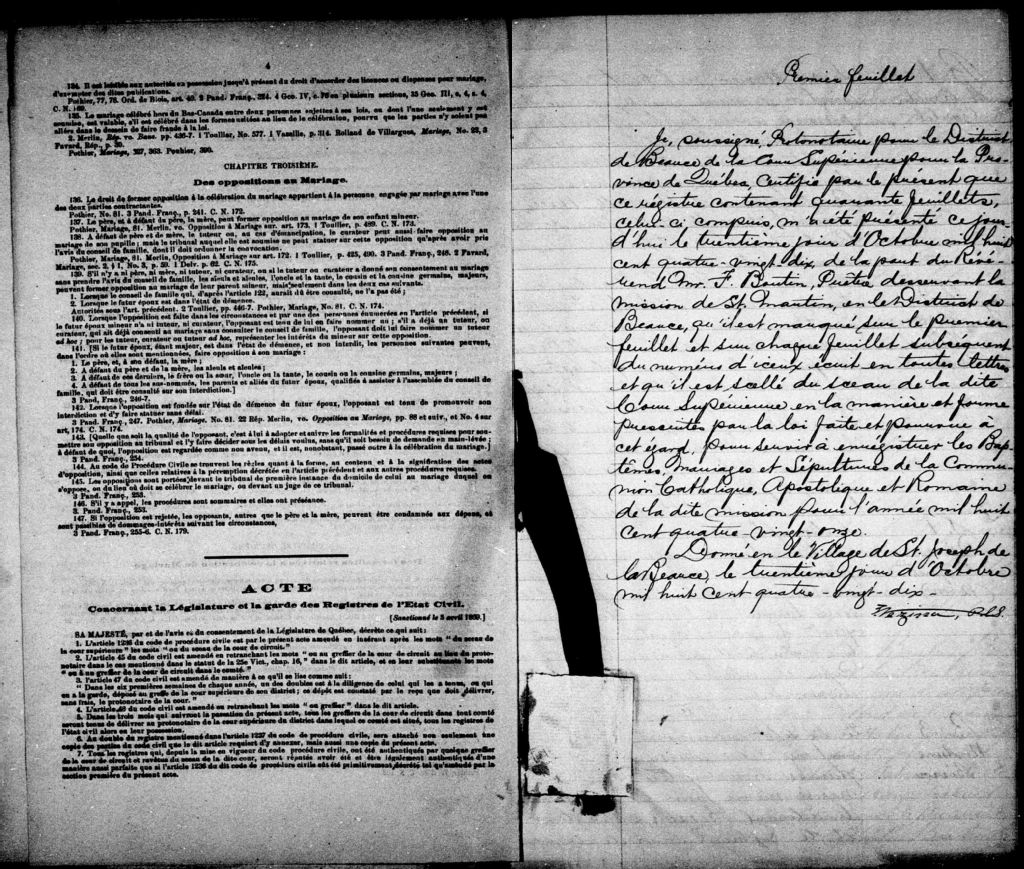 4
134. Il est loisible aux autorités en possession jusqu'à présent du droit d'accorder des licences ou dispenses pour mariage,
d'exempter des dites publications.
Pothier, 77, 78. Ord. de Blois, art. 40. 2 Pand. Franç., 4 Geo. IV, en plusieurs sections, 35 Geo. III, c. 4, s. 4,
C. N. 169.
135. Le mariage célébré hors du Bas-Canada entre deux personnes sujettes à ses lois, ou dont l'une seulement y est
soumise, est valable, s'il est célébré dans les formes usitées au lieu de la célébration, pourvu que les parties n'y soient pas
allées dans le dessein de faire fraude à la loi.
2 Merlin, Rép. vo. Banc. pp. 436-7. 1 Toullier, No. 577. 1 Vazille, p. 314. Rolland de Villargues, Mariage, No. 23, 3
Favard, Rép., p. 30.
Pothier, Mariage, 327, 363.
CHAPITRE TROISIÈME.
Des oppositions au Mariage.
136. Le droit de former opposition à la célébration du mariage appartient à la personne engagée par mariage avec l'une
des deux parties contractantes.
Pothier, No. 81. 3 Pand. Franç., p. 241. C. N. 172.
137. Le père, et à défaut du père, la mère, peut former opposition au mariage de son enfant mineur.
Pothier, Mariage, 81. Merlin, vo. Opposition à Mariage sur. art. 173, 1 Toullier, p. 489. C. N. 173.
138. A défaut de père et de mère, le tuteur ou, au cas d'émancipation, le curateur peut aussi faire opposition au
mariage de son pupille; mais le tribunal auquel elle est soumise ne peut statuer sur cette opposition qu'après avoir pris
l'avis du conseil de famille, dont il doit ordonner la convocation.
Pothier, Mariage, 81. Merlin, vo. Opposition à Mariage sur art. 172. 1 Toullier, p. 425, 490. 3 Pand. Franç., 248. 2 Favard,
Mariage, sec. 2, § 1, No. 3, p. 59. 1 Delv. p. 62. C. N. 175.
139. S'il n'y a ni père, ni mère, ni tuteur, ni curateur, ou si le tuteur ou curateur a donné son consentement au mariage
sans prendre l'avis du conseil de famille, les aïeuls et aïeules, l'oncle et la tante, le cousin et la cousine germains, majeurs,
peuvent former opposition au mariage de leur parent mineur, mais seulement dans les deux cas suivants.
1. Lorsque le conseil de famille qui, d'après l'article 122, aurait dû être consulté, ne l'a pas été;
2. Lorsque le futur époux est dans l'état de démence.
Autorités sous l'art. précédent. 2 Toullier, pp. 446-7. Pothier, Mariage, No. 81. C. N. 174.
140. Lorsque l'opposition est faite dans les circonstances et par une des personnes énumérées en l'article précédent, si
le futur époux mineur n'a ni tuteur, ni curateur, l'opposant est tenu de lui en faire nommer un; s'il a déjà un tuteur, ou
curateur, qui ait déjà consenti au mariage sans consulter le conseil de famille, l'opposant doit lui faire nommer un tuteur
ad hoc; pour les tuteur, curateur ou tuteur ad hoc, représenter les intérêts du mineur sur cette opposition.
141. [Si le futur époux, étant majeur, est dans l'état de démence, et non interdit, les personnes suivantes peuvent,
dans l'ordre où elles sont mentionnées, faire opposition à son mariage:
1. Le père, et, à son défaut, la mère;
2. A défaut du père et de la mère, les aïeuls et aïeules;
3. A défaut de ces derniers, le frère ou la sœur, l'oncle ou la tante, le cousin ou la cousine germains, majeurs;
4. A défaut de tous les sus-nommés, les parents et alliés du futur époux, qualifiés à assister à l'assemblée du conseil de
famille, qui doit être consulté sur son interdiction.]
3 Pand. Franç., 246-7.
142. Lorsque l'opposition est fondée sur l'état de démence du futur époux, l'opposant est tenu de promouvoir son
interdiction et d'y faire statuer sans délai.
3 Pand. Franç., 247. Pothier, Mariage, No. 81. 22 Rép. Merlin, vo. Opposition au Mariage, pp. 88 et suiv., et No. 4 sur
art. 174. C. N. 174.
143. [Quelle que soit la qualité de l'opposant, c'est à lui à adopter et suivre les formalités et procédures requises pour soumettre
son opposition au tribunal et l'y faire décider sous les délais voulus, sans qu'il soit besoin de demande en main-levée;
à défaut de quoi, l'opposition est regardée comme non avenue, et il est, nonobstant, passé outre à la célébration du mariage.]
3 Pand. Franç., 254.
144. Au code de Procédure Civile se trouvent les règles quant à la forme, au contenu et à la signification des actes
d'opposition, ainsi que celles relatives à la péremption décrétée en l'article précédent et aux autres procédures requises.
145. Les oppositions sont portées devant le tribunal de première instance du domicile de celui au mariage duquel on
s'oppose, ou du lieu où doit se célébrer le mariage, ou devant un juge de ce tribunal.
3 Pand. Franç., 253.
146. S'il y a appel, les procédures sont sommaires et elles ont préséance.
3 Pand. Franç., 253.
147. Si l'opposition est rejetée, les opposants, autres que le père et la mère, peuvent être condamnés aux dépens, et
sont passibles de dommages-intérêts suivant les circonstances,
3 Pand. Franç., 255-6. C. N. 179.
ACTE
Concernant la Législature et la garde des Registres de l'Etat Civil.
[Sanctionné le 5 avril 1869.]
SA MAJESTÉ, par et de l'avis et du consentement de la Législature de Québec, décrète ce qui suit:
1. L'article 1236 du code de procédure civile est par le présent acte amendé en insérant après les mots "du sceau de
la cour supérieure" les mots "ou du sceau de la cour de circuit."
2. L'article 45 du code civil est amendé en retranchant les mots "ou au greffier de la cour de circuit au lieu du protonotaire
dans le cas mentionné dans le statut de la 25e Vict., chap. 16," dans le dit article, et en leur substituant les mots
"ou à un greffier de la cour de circuit dans le comté."
3. l'article 47 du code civil est amendé de manière à ce qu'il se lise comme suit:
"Dans les six premières semaines de chaque année, un des doubles est à la diligence de celui qui les a tenus, ou qui
en a la garde, déposé au greffe de la cour supérieure de son district; ce dépôt est constaté par le reçu que doit délivrer,
sans frais, le protonotaire de la cour."
4. L'article 48 du code civil est amendé en retranchant les mots "ou greffier" dans le dit article.
5. Dans les trois mois qui suivront la passation du présent acte, tous les greffiers de la cour de circuit dans tout comté
seront tenus de délivrer au protonotaire de la cour supérieure du district dans lequel ce comté est situé, tous les registres de
l'état civil alors en leur possession.
6. Au double du registre mentionné dans l'article 1237 du code de procédure civile, sera attaché non seulement une
copie des parties du code civil que le dit article requiert d'y annexer, mais aussi une copie du présent acte.
7. Tous les registres qui, depuis la mise en vigueur du code procédure civile, ont été authentiqués par quelque greffier
de la cour de circuit et revêtus du sceau de la dite cour, seront réputés avoir été et être légalement authentiqués d'une
manière aussi parfaite que si l'article 1236 du dit code de procédure civile eût été primitivement décrété tel qu'amendé par la
section première du présent acte.
Premier feuillet
Je, soussigné, Protonotaire pour le District
de Beauce de la Cour Supérieure pour la Pro-
vince de Québec, Certifie par le présent que
ce régistre contenant quarante feuillets,
celui-ci compris, m'a été présenté ce jour
d'hui le trentième jour d'Octobre mil huit
cent quatre-vingt dix, de la part du Révé-
rend Mr. F. Boutin, Prêtre desservant la
mission de St. Martin, en le District de
Beauce, qu'il est marqué sur le premier
feuillet et sur chaque feuillet subséquent
du numéro d'iceux écrit en toutes lettres
et qu'il est scellé du sceau de la dite
Cour Supérieure en la manière et forme
prescrites par la loi faite et pourvue à
cet égard. Pour servir à enrégistrer les Bap-
têmes, mariages et Sépultures de la Commu-
nion Catholique, Apostolique et Romaine
de la dite mission pour l'année mil huit
cent quatre-vingt-onze.
Donné en le Village de St. Joseph de
la Beauce, le trentième jour d'Octobre
mil huit cent quatre-vingt-dix.
Vézina, P.C.S.